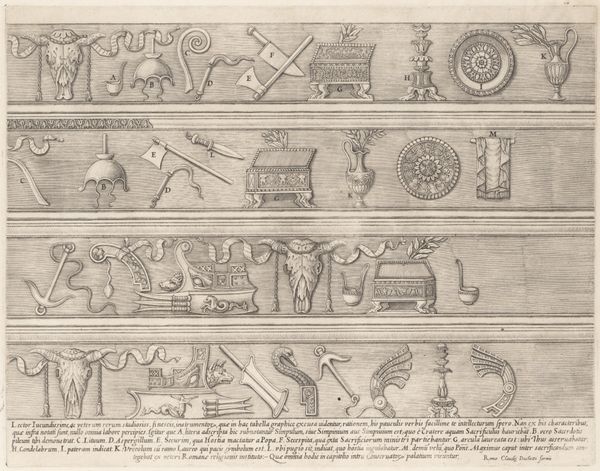 A
B
C
D
E
F
G
H
K
C
B
E
D
L
G
K
M
Lector Iucundissime, ac veterum rerum studiosus, si nescis, instrumentorum, que in hac tabella graphice excussa videntur, rationem, his pauculis verbis facillime te intellecturum spero. Nam ex his characteribus,
que infra notati sunt, nullo omnia labore percipies. Igitur que A. litera adscripta hic subnotantur Simpullum, siue Simpunium aut Simpuuium est, quo e Cratere aquam Sacrificiali hauriebat. B. vero Sacerdotis
pileum tibi demonstrat. C. Lituum. D. Aspergillum. E. Securim, qua Hostia mactatur a Popa. F. Secespita, qua exta Sacrificiorum ministri partiebantur. G. arcula laureata est: ubi Thus asseruabatur.
H. Candelabrum. I. pateram indicat. K. Urceolum cū ramo Laureo qui pacis symbolum est. L. ubi pugio est indicat, quo hostia iugulabatur. M. demū velū, quo Pont. Maximus caput inter sacrificandum con-
tegebat ex veteri Romane religionis instituto. Que omnia hodie in capitolio intra Conseruatorū palatium visuntur.
Rome Claudij Ducheti formis